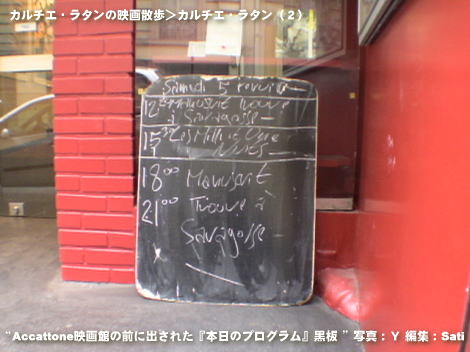 カルチエ・ラタンの映画散歩＞カルチエ・ラタン（２）
Samedi 5 fevrier
Trouve
à Saragosse
15 Les Mille et Une
NUITS
18 00 Manuscrit
21 00 Trouve à
Saragosse
“Accattone映画館の前に出された『本日のプログラム』黒板 ” 写真 : Y 編集 : Sati